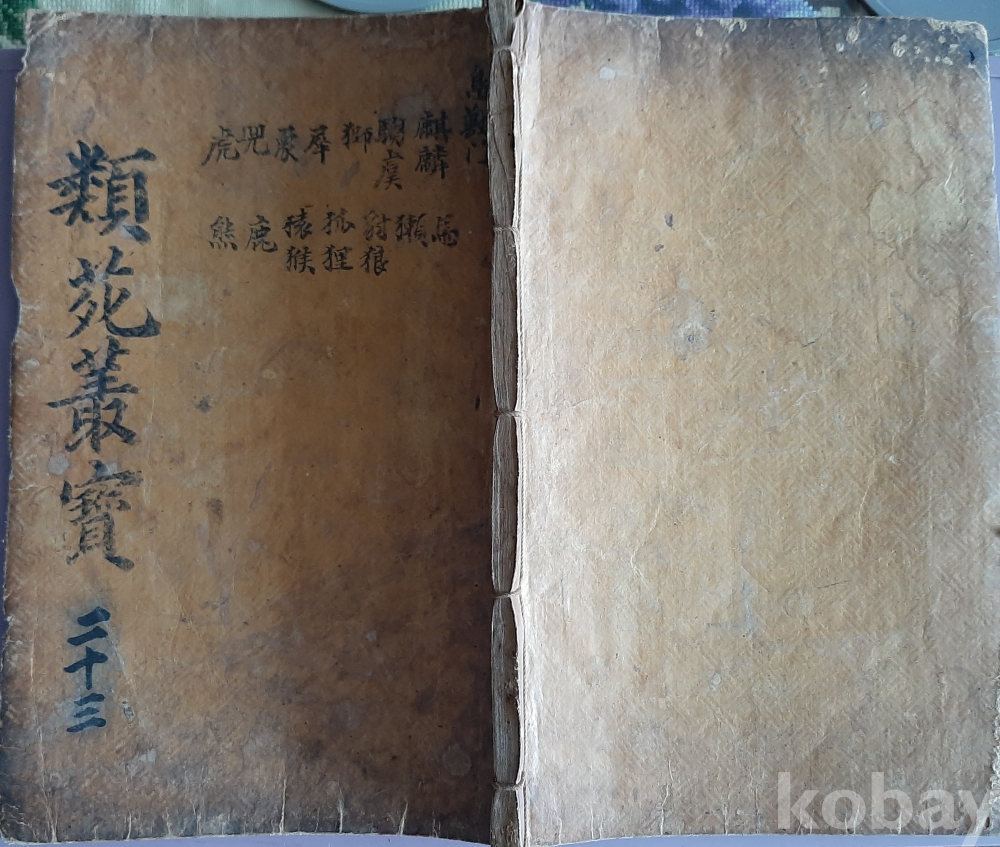 類苑叢寶 二十三
鳥獸門
麒麟
騶虞
獅
犀
象
兕
虎
馬
獺
豺狼
狐狸
猿猴
鹿
熊
kobay